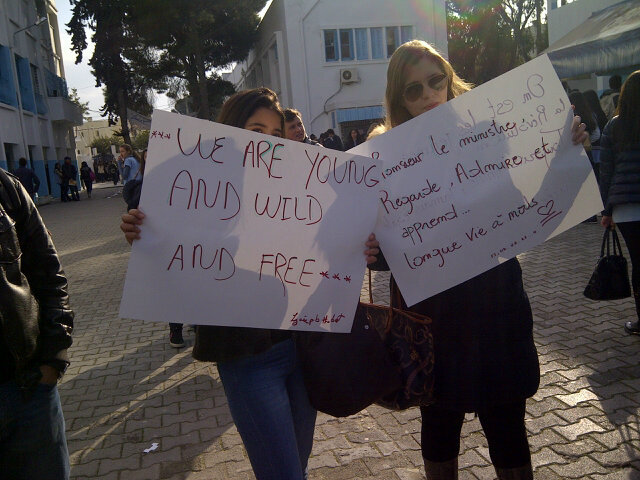 *** WE ARE YOUNG
AND WILD
AND FREE ***
On est
la
monsieur le ministre,
Regarde, Admire et
apprend...
longue vie à nous